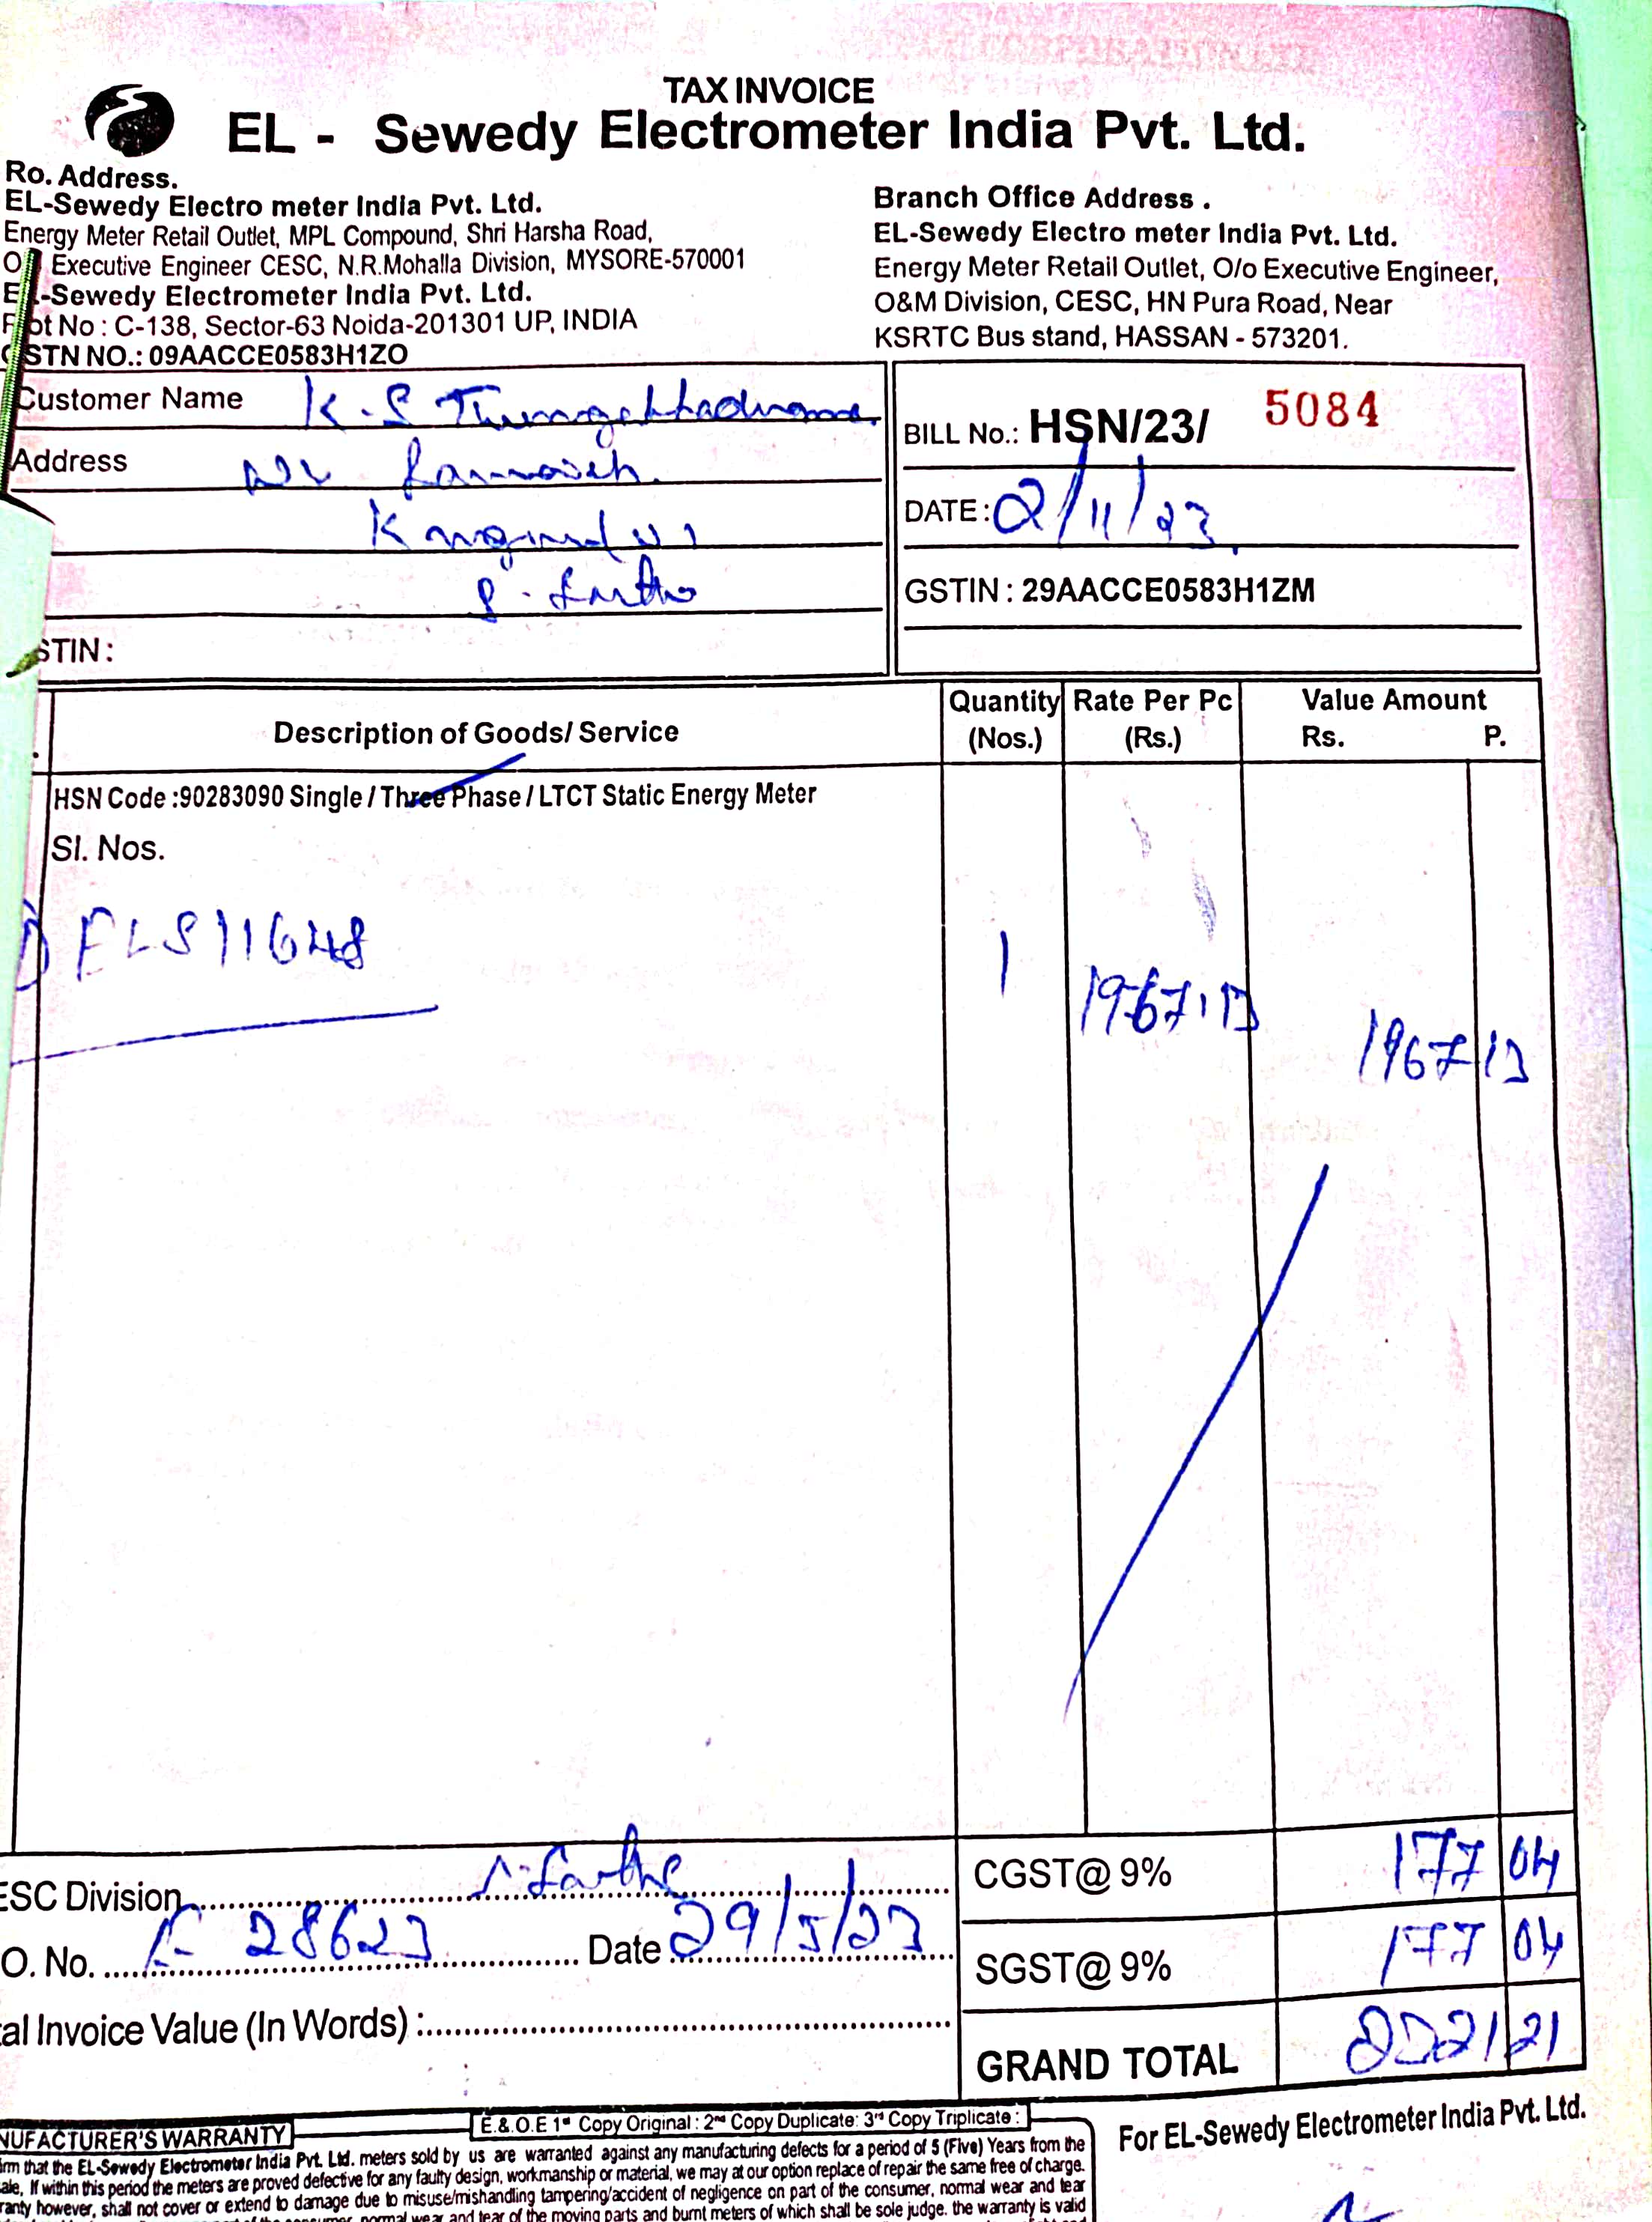 TAX INVOICE
EL - Sewedy Electrometer India Pvt. Ltd.
Ro. Address.
EL-Sewedy Electro meter India Pvt. Ltd.
Energy Meter Retail Outlet, MPL Compound, Shri Harsha Road,
Executive Engineer CESC, N.R.Mohalla Division, MYSORE-570001
-Sewedy Electrometer India Pvt. Ltd.
ot No : C-138, Sector-63 Noida-201301 UP, INDIA
STN NO.: 09AACCE0583H1ZO
Branch Office Address .
EL-Sewedy Electro meter India Pvt. Ltd.
Energy Meter Retail Outlet, O/o Executive Engineer,
O&M Division, CESC, HN Pura Road, Near
KSRTC Bus stand, HASSAN - 573201.
Customer Name K.S
Address
STIN :
BILL No.: HSN/23/ 5084
DATE : 2/11/23
GSTIN : 29AACCE0583H1ZM
Description of Goods/ Service
Quantity (Nos.)
Rate Per Pc (Rs.)
Value Amount
Rs. P.
HSN Code :90283090 Single / Three Phase / LTCT Static Energy Meter
Sl. Nos.
1) ELS11648 1 1967.13 1967 13
ESC Division
CGST@ 9% 177 04
O. No. 28623 Date 29/5/23
SGST@ 9% 177 04
al Invoice Value (In Words) :
GRAND TOTAL 2321 21
E.&.O.E 1st Copy Original : 2nd Copy Duplicate: 3rd Copy Triplicate :
NUFACTURER'S WARRANTY
irm that the EL-Sewedy Electrometer India Pvt. Ltd. meters sold by us are warranted against any manufacturing defects for a period of 5 (Five) Years from the
ale, If within this period the meters are proved defective for any faulty design, workmanship or material, we may at our option replace of repair the same free of charge.
ranty however, shall not cover or extend to damage due to misuse/mishandling tampering/accident of negligence on part of the consumer, normal wear and tear
normal wear and tear of the moving parts and burnt meters of which shall be sole judge. the warranty is valid
For EL-Sewedy Electrometer India Pvt. Ltd.